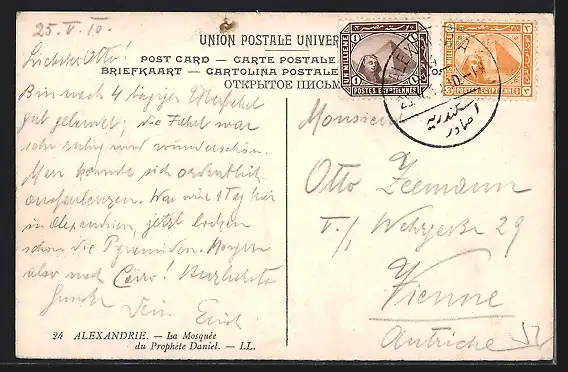 25. V. 10.
UNION POSTALE UNIVER
POST CARD — CARTE POSTALE
BRIEFKAART — CARTOLINA POSTALE
ОТКРЫТОЕ ПИСЬМ
Liebster Otto!
Bin nach 4 tägiger
gut gelandet; die Fahrt war
sehr ruhig und wunderschön.
Man konnte sich ordentlich
War nur 1 Tag hier
in Alexandrien, jetzt locken
schon die Pyramiden. Morgen
aber nach Cairo! Herzlichste
Dein
24 ALEXANDRIE. — La Mosquée
du Prophète Daniel. — LL.
UN MILLIEME
1 1
POSTES EGYPTIENNES
3
POSTES EGYPTIENNES
اسكندرية
صادر
Monsieur
Otto Zeemann
V./, Wehrgasse 29
Vienne
Autriche